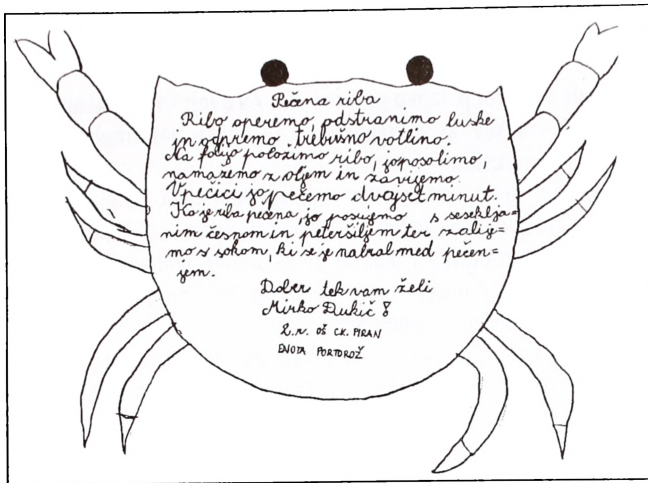 Pečena riba
Ribo operemo, odstranimo luske
in odpremo trebušno votlino.
Na folijo položimo ribo, jo posolimo,
namažemo z oljem in zavijemo.
V pečici jo pečemo dvajset minut.
Ko je riba pečena, jo posujemo s seseklja=
nim česnom in peteršiljem ter zalije=
mo s sokom, ki se je nabral med pečen=
jem.
Dober tek vam želi
Mirko Đukič!
2.r. OŠ CK. PIRAN
ENOTA PORTOROŽ